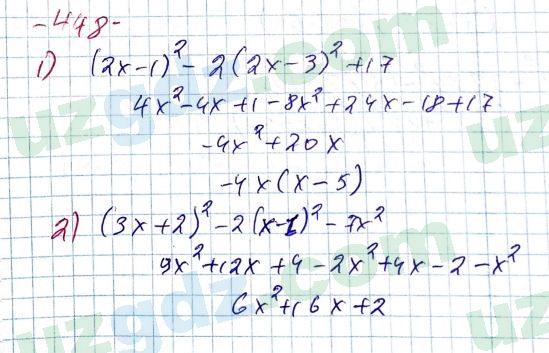 -448-
1) (2x-1)² - 2(2x-3)² + 17
4x² - 4x + 1 - 8x² + 24x - 18 + 17
-4x² + 20x
-4x(x-5)
2) (3x+2)² - 2(x-1)² - 7x²
9x² + 12x + 4 - 2x² + 4x - 2 - x²
6x² + 16x + 2
uzgdz.com